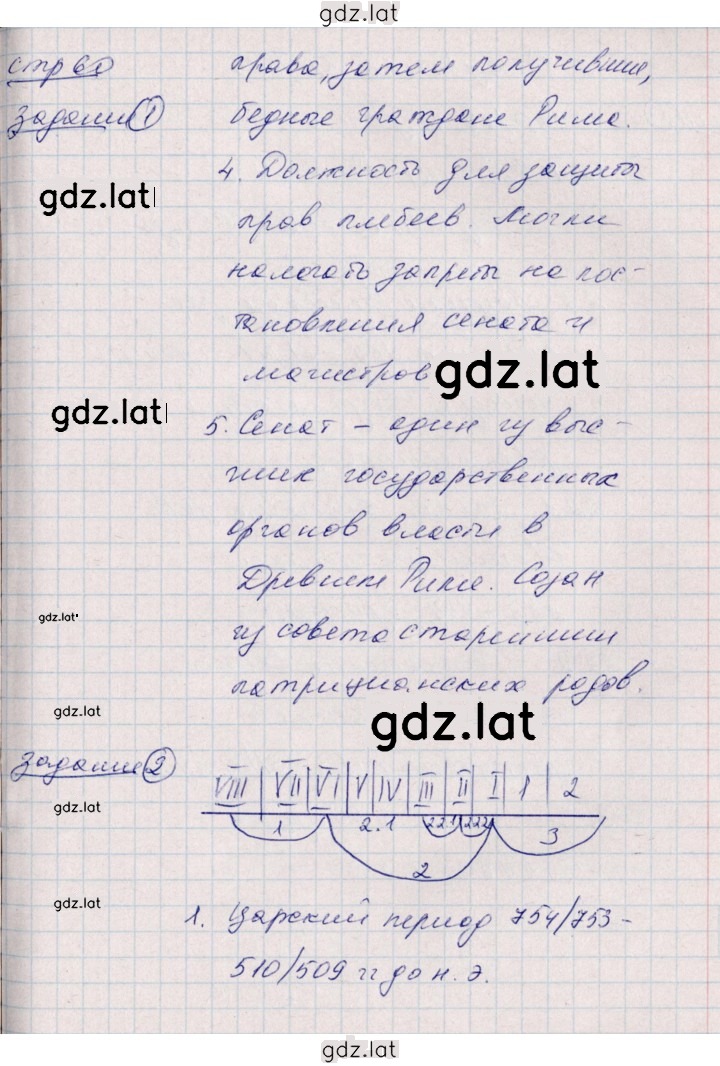 gdz.lat
стр 60
права, затем получившие,
Задание 1
бедные граждане Рима.
4. Должность для защиты
gdz.lat
прав плебеев. Могли
налагать запреты на пос-
тановления сената и
магистров
gdz.lat
gdz.lat
5. Сенат – один из выс-
ших государственных
органов власти в
Древнем Риме. Созан
gdz.lat
из совета старейшин
патрицианских родов.
gdz.lat
gdz.lat
Задание 2
VIII | VII | VI | V | IV | III | II | I | 1 | 2
gdz.lat
1 2.1 2.2.1 2.2.2 3
2
gdz.lat
1. Царский период 754/753 –
510/509 гг до н. э.
gdz.lat
gdz.lat